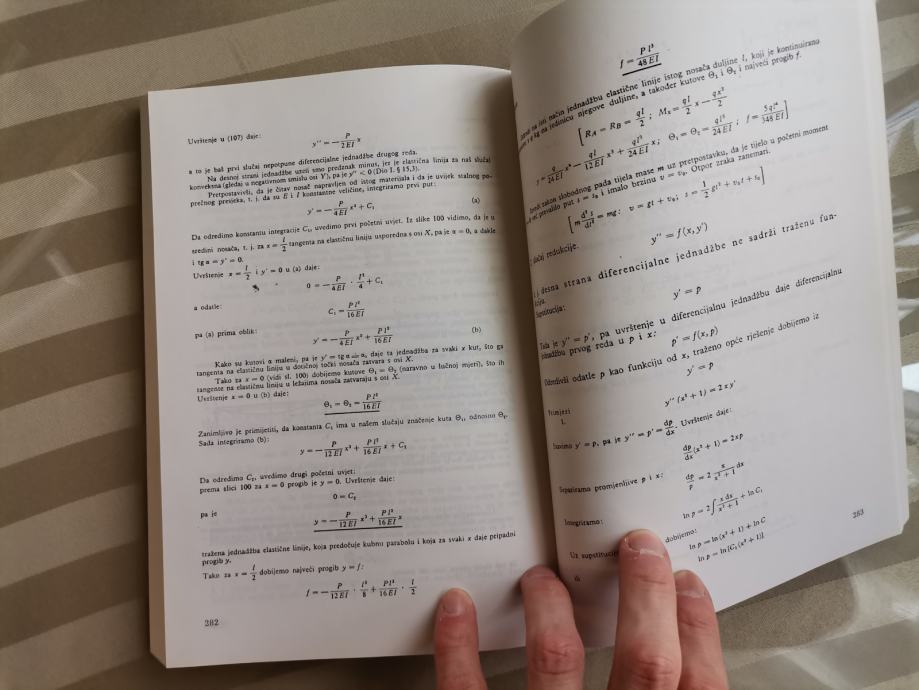 Uvrštenje u (107) daje:
y'' = − P/2EI x
a to je baš prvi slučaj nepotpune diferencijalne jednadžbe drugog reda.
Na desnoj strani jednadžbe uzeli smo predznak minus, jer je elastična linija za naš slučaj
konveksna (gledaj u negativnom smislu osi Y), pa je y'' < 0 (Dio I. § 15,3).
Pretpostavivši, da je čitav nosač napravljen od istog materijala i da je uvijek stalnog po-
prečnog presjeka, t. j. da su E i I konstantne veličine, integriramo prvi put:
y' = − P/4EI x² + C₁ (a)
Da odredimo konstantu integracije C₁, uvedimo prvi početni uvjet. Iz slike 100 vidimo, da je u
sredini nosača, t. j. za x = l/2 tangenta na elastičnu liniju usporedna s osi X, pa je α = 0, a dakle
i tg α = y' = 0.
Uvrštenje x = l/2 i y' = 0 u (a) daje:
0 = − P/4EI · l²/4 + C₁
a odatle:
C₁ = Pl²/16EI
pa (a) prima oblik:
y' = − P/4EI x² + Pl²/16EI (b)
Kako su kutovi α maleni, pa je y' = tg α ≐ α, daje ta jednadžba za svaki x kut, što ga
tangenta na elastičnu liniju u dotičnoj točki nosača zatvara s osi X.
Tako za x = 0 (vidi sl. 100) dobijemo kutove Θ₁ = Θ₂ (naravno u lučnoj mjeri), što ih
tangente na elastičnu liniju u ležajima nosača zatvaraju s osi X.
Uvrštenje x = 0 u (b) daje:
Θ₁ = Θ₂ = Pl²/16EI
Zanimljivo je primijetiti, da konstanta C₁ ima u našem slučaju značenje kuta Θ₁, odnosno Θ₂.
Sada integriramo (b):
y = − P/12EI x³ + Pl²/16EI x + C₂
Da odredimo C₂, uvedimo drugi početni uvjet:
prema slici 100 za x = 0 progib je y = 0. Uvrštenje daje:
0 = C₂
pa je
y = − P/12EI x³ + Pl²/16EI x
tražena jednadžba elastične linije, koja predočuje kubnu parabolu i koja za svaki x daje pripadni
progib y.
Tako za x = l/2 dobijemo najveći progib y = f:
f = − P/12EI · l³/8 + Pl²/16EI · l/2
282
f = Pl³/48EI
na isti način jednadžbu elastične linije istog nosača duljine l, koji je kontinuirano
q kg na jedinicu njegove duljine, a također kutove Θ₁ i Θ₂ i najveći progib f.
[R_A = R_B = ql/2 ; Mₓ = ql/2 x − qx²/2
y = q/24EI x⁴ − ql/12EI x³ + ql³/24EI x; Θ₁ = Θ₂ = ql³/24EI ; f = 5ql⁴/348EI]
zakon slobodnog pada tijela mase m uz pretpostavku, da je tijelo u početni moment
prevalilo put s = s₀ i imalo brzinu v = v₀. Otpor zraka zanemari.
[m d²s/dt² = mg: v = gt + v₀; s = 1/2 gt² + v₀t + s₀]
slučaj redukcije.
y'' = f(x,y')
t. j. desna strana diferencijalne jednadžbe ne sadrži traženu fun-
kciju.
Supstitucija:
y' = p
Tada je y'' = p', pa uvrštenje u diferencijalnu jednadžbu daje diferencijalnu
jednadžbu prvog reda u p i x:
p' = f(x,p)
Odredivši odatle p kao funkciju od x, traženo opće rješenje dobijemo iz
y' = p
Primjeri
1.
y'' (x² + 1) = 2xy'
y' = p, pa je y'' = p' = dp/dx. Uvrštenje daje:
dp/dx (x² + 1) = 2xp
Separiramo promjenljive p i x:
dp/p = 2 x/x² + 1 dx
Integriramo:
ln p = 2∫ x dx/x² + 1 + ln C₁
Uz supstituciju
dobijemo:
ln p = ln (x² + 1) + ln C
ln p = ln [C₁ (x² + 1)]
283